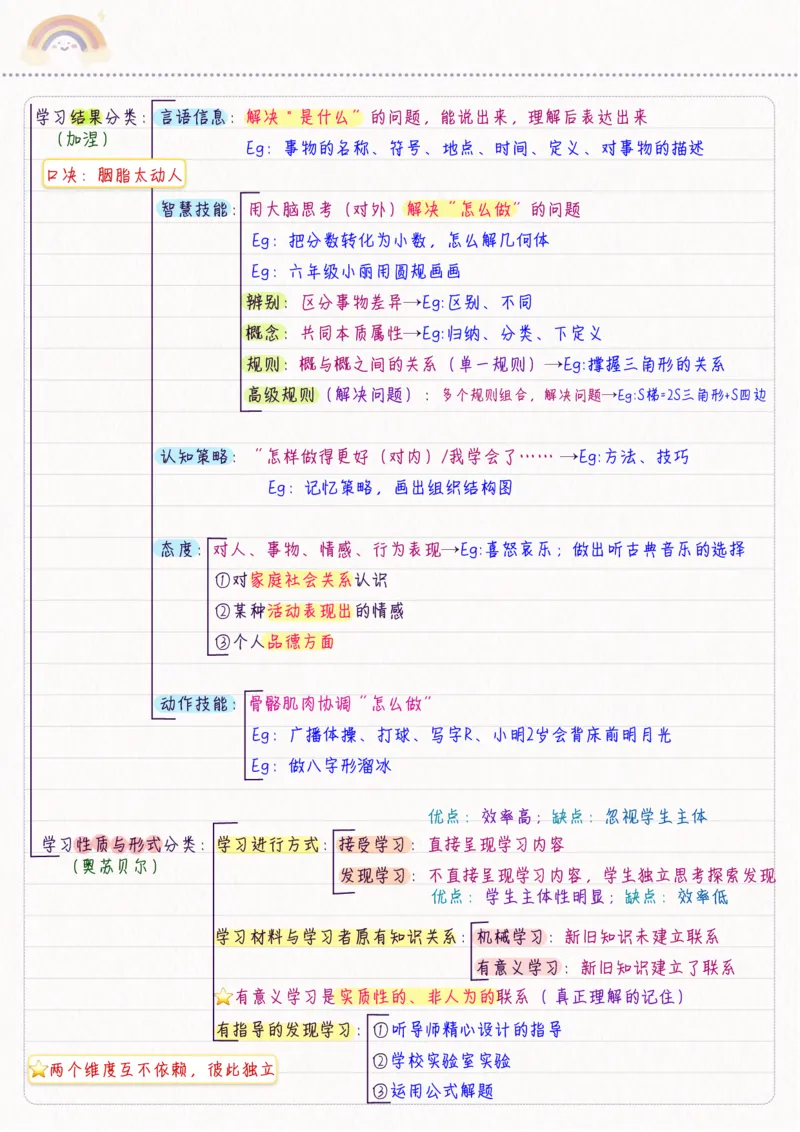 学习结果分类：
（加涅）
口决：胭脂太动人
言语信息：解决"是什么"的问题，能说出来，理解后表达出来
Eg：事物的名称、符号、地点、时间、定义、对事物的描述
智慧技能：用大脑思考（对外）解决"怎么做"的问题
Eg：把分数转化为小数，怎么解几何体
Eg：六年级小丽用圆规画画
辨别：区分事物差异→Eg:区别、不同
概念：共同本质属性→Eg:归纳、分类、下定义
规则：概与概之间的关系（单一规则）→Eg:撑握三角形的关系
高级规则（解决问题）：多个规则组合，解决问题→Eg:S梯=2S三角形+S四边
认知策略："怎样做得更好（对内）/我学会了……→Eg:方法、技巧
Eg：记忆策略，画出组织结构图
态度：对人、事物、情感、行为表现→Eg:喜怒哀乐；做出听古典音乐的选择
①对家庭社会关系认识
②某种活动表现出的情感
③个人品德方面
动作技能：骨骼肌肉协调"怎么做"
Eg：广播体操、打球、写字R、小明2岁会背床前明月光
Eg：做八字形溜冰
学习性质与形式分类：
（奥苏贝尔）
优点：效率高；缺点：忽视学生主体
学习进行方式：接受学习：直接呈现学习内容
发现学习：不直接呈现学习内容，学生独立思考探索发现
优点：学生主体性明显；缺点：效率低
学习材料与学习者原有知识关系：机械学习：新旧知识未建立联系
有意义学习：新旧知识建立了联系
⭐有意义学习是实质性的、非人为的联系（真正理解的记住）
有指导的发现学习：①听导师精心设计的指导
②学校实验室实验
③运用公式解题
⭐两个维度互不依赖，彼此独立